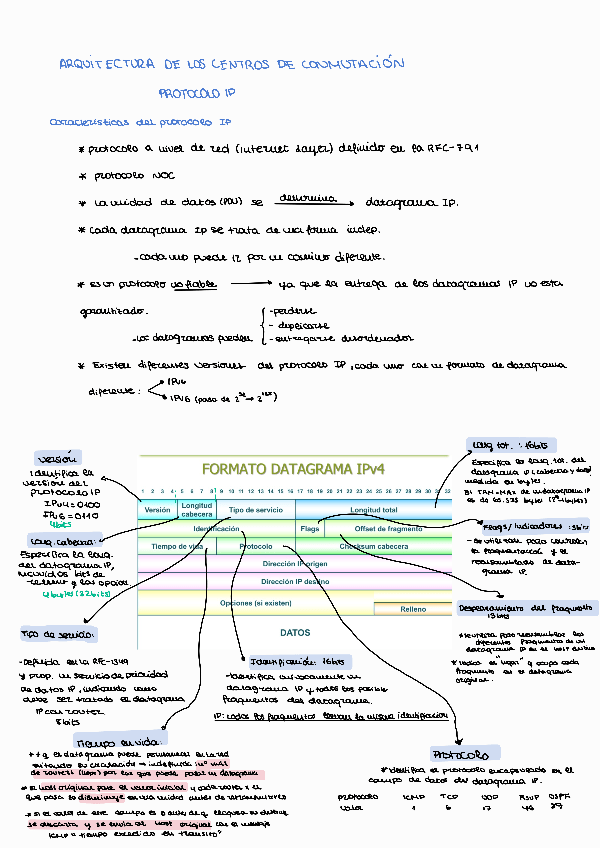 ARQUITECTURA DE LOS CENTROS DE CONMUTACIÓN
PROTOCOLO IP
Características del protocolo IP
* protocolo a nivel de red (internet layer) definido en la RFC-791
* protocolo NOC
* La unidad de datos (PDU) se denomina datagrama IP.
* Cada datagrama IP se trata de una forma indep.
-cada uno puede ir por un camino diferente.
* es un protocolo no fiable ya que la entrega de los datagramas IP no esta
garantizado.
-perderse
-Los datagramas pueden - duplicarse
-entregarse desordenados
* Existen diferentes versiones del protocolo IP, cada uno con un formato de datagrama
diferente: IPv4
IPv6 (pasa de 2^32 → 2^128)
Versión
Identifica la
versión del
protocolo IP
IPv4=0100
IPv6=0110
4bits
Long.cabecera:
Especifica la long.
del datagrama IP,
incluidos bits de
relleno y las opcion.
4bytes (32bits)
Tipo de servicio:
-Definida en la RFC-1349
y prop. un servicio de prioridad
de datos IP, indicando como
debe ser tratado el datagrama
IP con router
8bits
FORMATO DATAGRAMA IPv4
1 2 3 4 5 6 7 8 9 10 11 12 13 14 15 16 17 18 19 20 21 22 23 24 25 26 27 28 29 30 31 32
Versión Longitud cabecera Tipo de servicio Longitud total
Identificación Flags Offset de fragmento
Tiempo de vida Protocolo Checksum cabecera
Dirección IP origen
Dirección IP destino
Opciones (si existen)
Relleno
DATOS
Long tot. : 16bits
Especifica la long. tot. del
datagrama IP (cabecera y datos)
medida en bytes.
El TAM-MAX de un datagrama IP
es de 65.535 bytes
Flags/Indicadores :3bits
-se utilizan para controlar
la fragmentación y el
reensamblado de data-
grama IP.
Desplazamiento del fragmento
13bits
diferentes fragmentos de un
datagrama IP en el host destino
* Indica el "lugar" q ocupa cada
fragmento en el datagrama
original.
Identificación: 16bits
-Identifica unívocamente un
datagrama IP y todos los posibles
fragmentos del datagrama.
IP: todos los fragmentos llevan la misma identificación
Tiempo en vida:
* t q el datagrama puede permanecer en la red
limitando su circulación → indica un nº max
de routers (hops) por los que puede pasar un datagrama
* el host origina pone el valor inicial y cada router x el
que pasa lo disminuye en una unidad antes de retransmitirlo
* si el valor de este campo es 0 antes de q llegue a su destino
se descarta y se envia al host original con el mensaje
ICMP "tiempo excedido en transito"
Protocolo
*Identifica el protocolo encapsulado en el
campo de datos del datagrama IP.
protocolo ICMP TCP UDP RSVP OSPF
valor 1 6 17 46 89